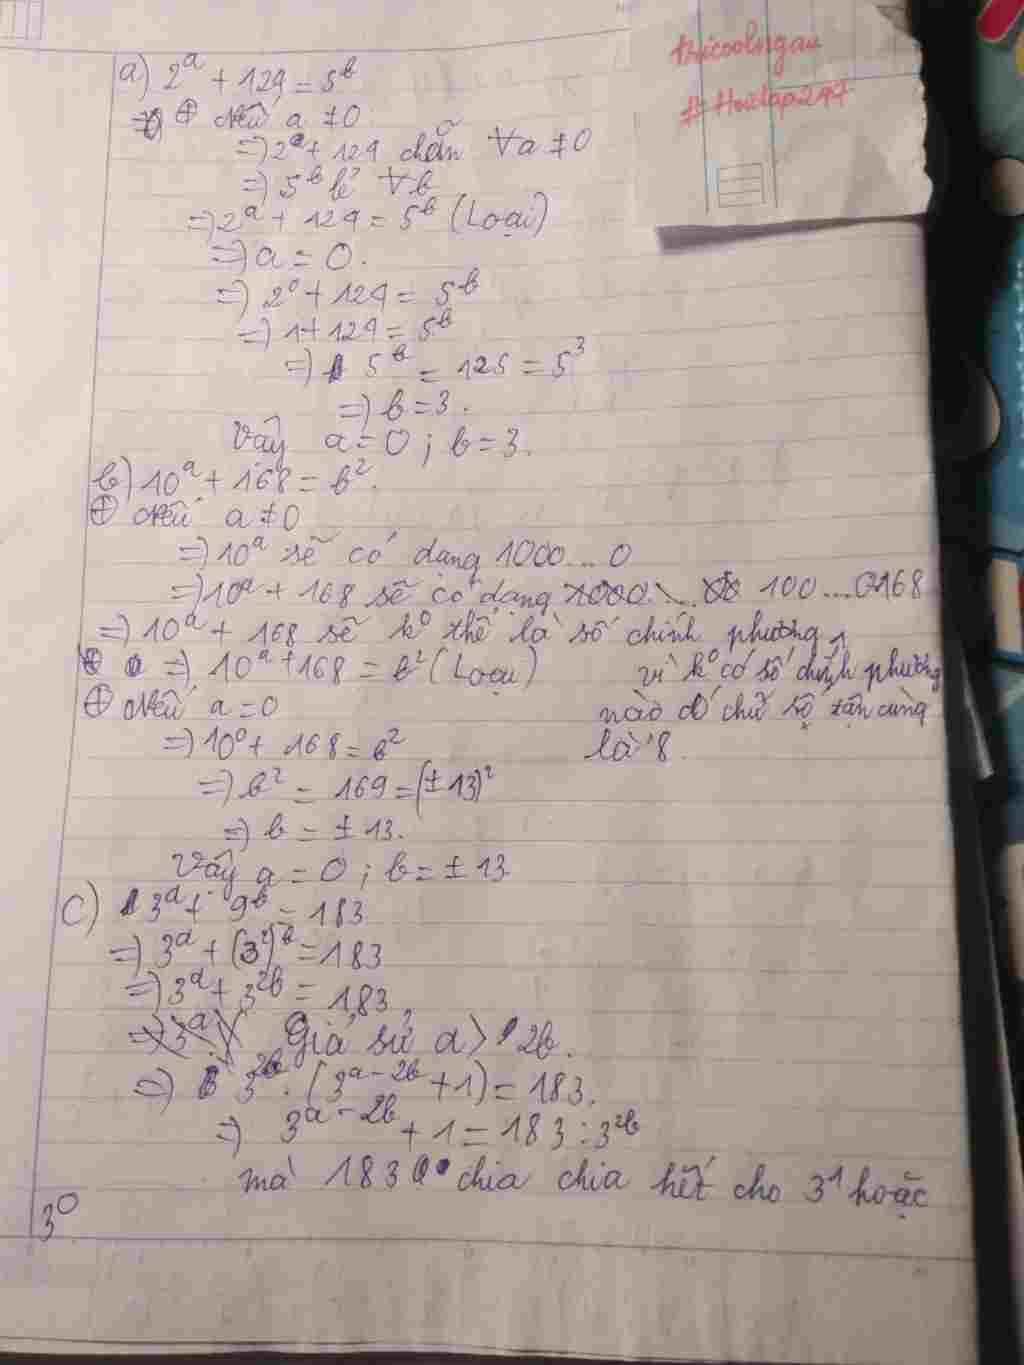 tricoolngau
#Hoidap247
a) 2^a + 124 = 5^b
⊕ Nếu a ≠ 0
=> 2^a + 124 chẵn ∀a ≠ 0
=> 5^b lẻ ∀b
=> 2^a + 124 = 5^b (Loại)
=> a = 0.
=> 2^0 + 124 = 5^b
=> 1 + 124 = 5^b
=> 5^b = 125 = 5^3
=> b = 3.
Vậy a = 0 ; b = 3.
b) 10^a + 168 = b^2.
⊕ Nếu a ≠ 0
=> 10^a sẽ có dạng 1000...0
=> 10^a + 168 sẽ có dạng 100...0168
=> 10^a + 168 sẽ k° thể là số chính phương,
vì k° có số chính phương
nào có chữ số tận cùng
là 8.
=> 10^a + 168 = b^2 (Loại)
⊕ Nếu a = 0
=> 10^0 + 168 = b^2
=> b^2 = 169 = (±13)^2
=> b = ±13.
Vậy a = 0 ; b = ±13
c) 3^a + 9^b = 183
=> 3^a + (3^2)^b = 183
=> 3^a + 3^2b = 183
Giả sử a > 2b.
=> 3^2b . (3^a-2b + 1) = 183.
=> 3^a-2b + 1 = 183 : 3^2b
mà 183 chia chia hết cho 3^1 hoặc
3^0